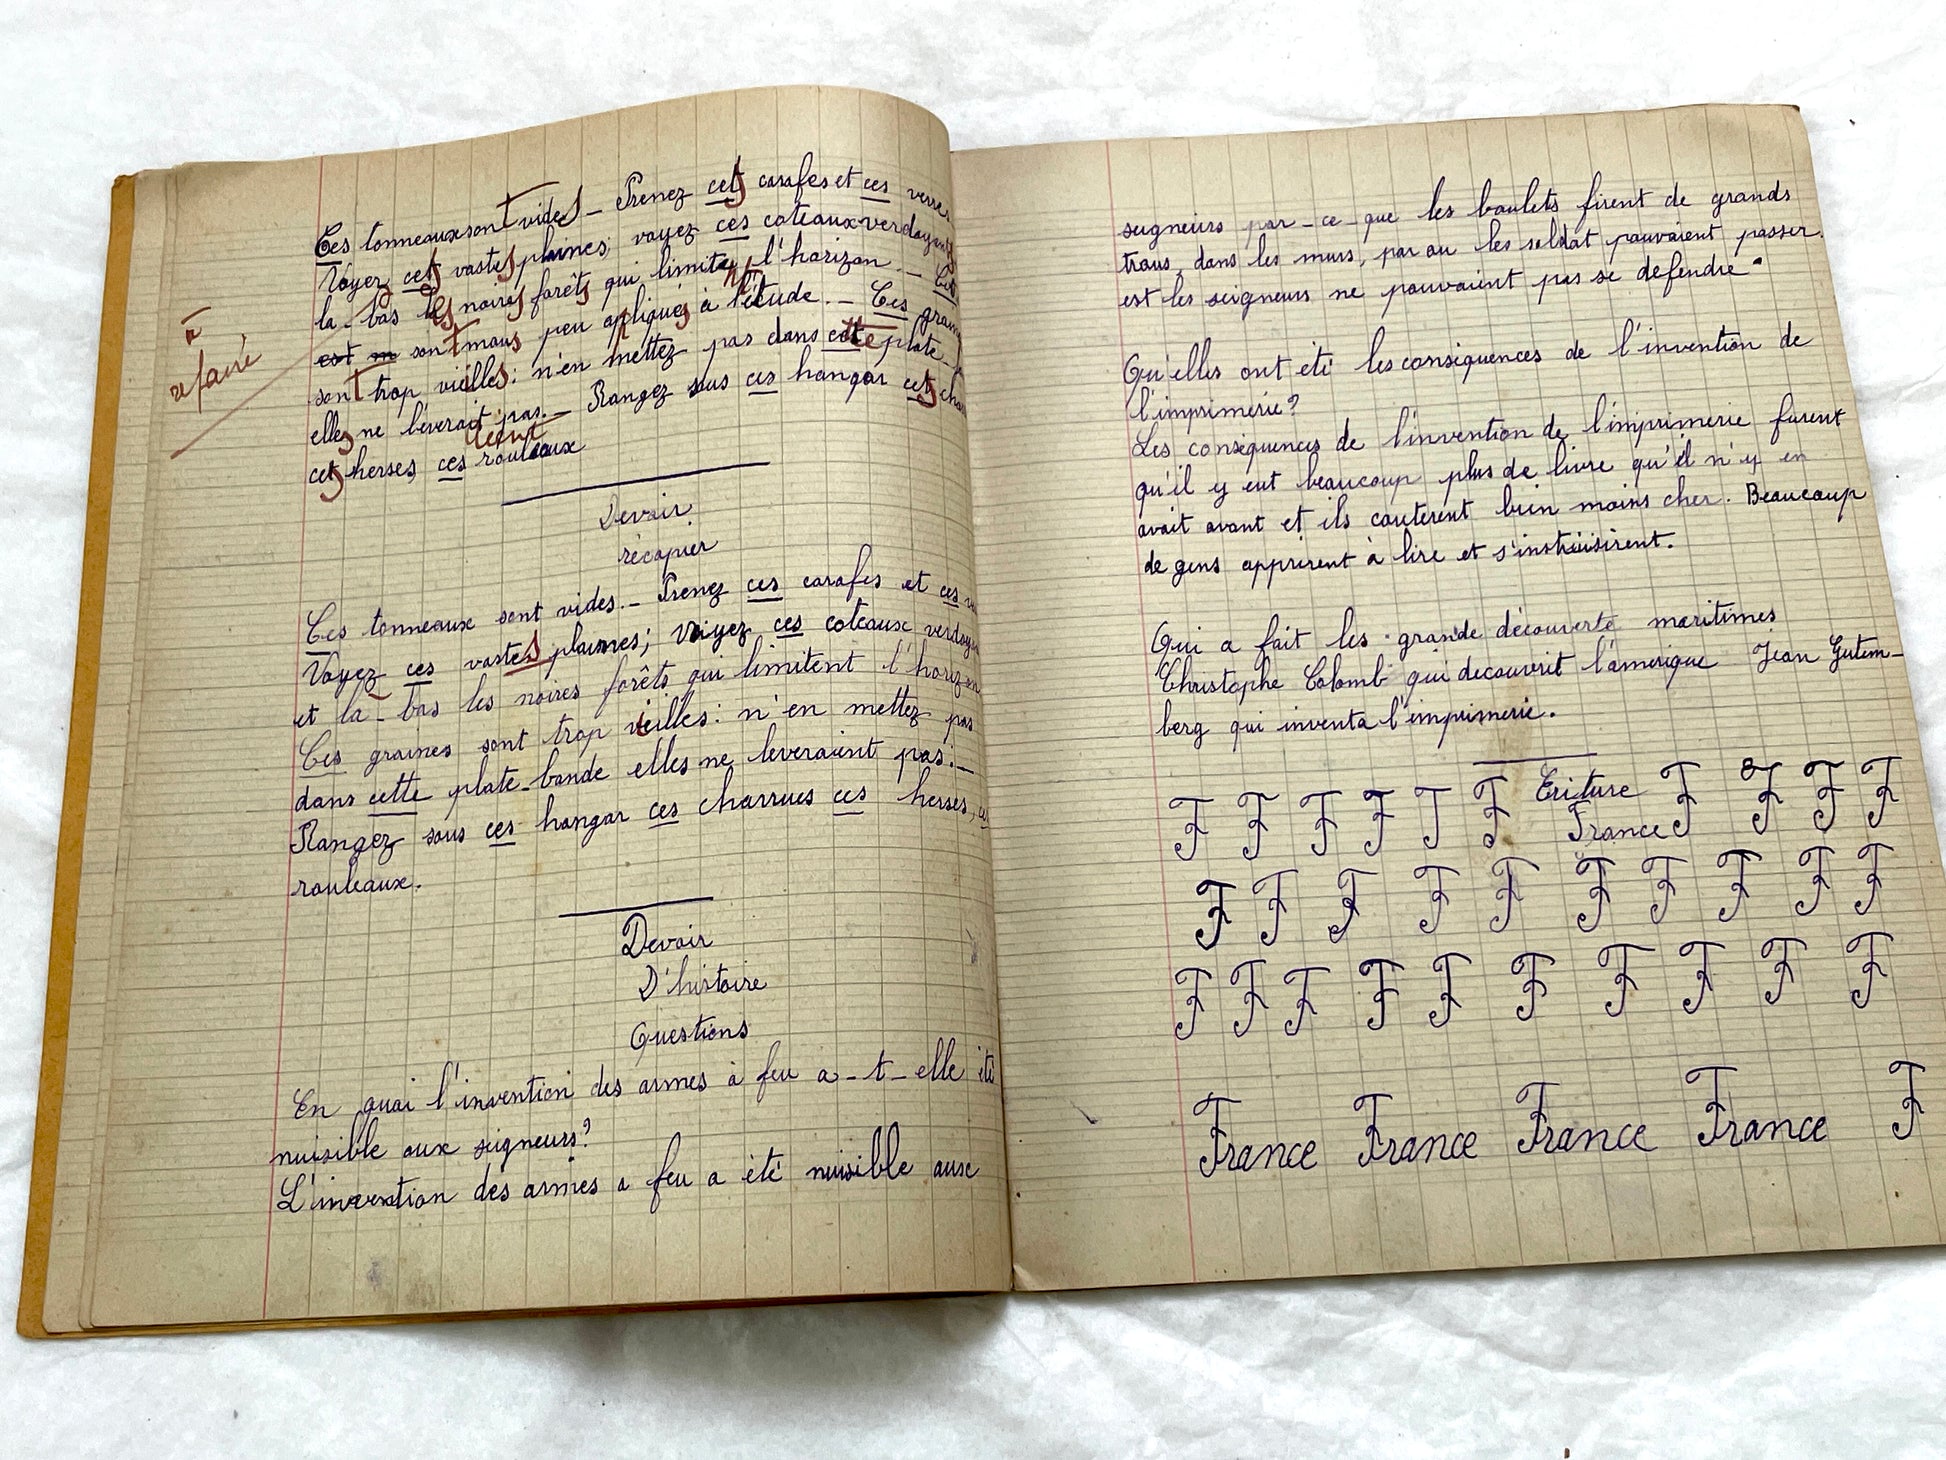 à
refaire
Ces tonneaux sont vides _ Prenez cets carafes et ces verres
Voyez cets vastes plaines; voyez ces coteaux verdoyants
la-bas les noires forêts qui limitent l'horizon. _
est m sont mous peu appliqués à l'étude. _ Ces grain
sont trop vieilles: n'en mettez pas dans cette plate-
elles ne lèverait pas. _ Rangez sous ces hangar cets cha
cets herses, ces rouleaux
Devoir
récopier
Ces tonneaux sont vides. _ Prenez ces carafes et ces v
Voyez ces vastes plaines; Voyez ces coteaux verdoya
et la-bas les noires forêts qui limitent l'horizon
Ces graines sont trop vieilles: n'en mettez pas
dans cette plate-bande elles ne leveraient pas: _
Rangez sous ces hangar ces charrues ces herses, ces
rouleaux.
Devoir
D'histoire
Questions
En quoi l'invention des armes à feu a-t-elle été
nuisible aux seigneurs?
L'invention des armes a feu a été nuisible aux
seigneurs par-ce-que les boulets firent de grands
trous, dans les murs, par ou les soldat pouvaient passer.
est les seigneurs ne pouvaient pas se defendre.
Qu'elles ont été les conséquences de l'invention de
l'imprimerie?
Les conséquences de l'invention de l'imprimerie furent
qu'il y eut beaucoup plus de livre qu'il n'y en
avait avant et ils couterent bien moins cher. Beaucoup
de gens apprirent à lire et s'instruisirent.
Qui a fait les grande découverte maritimes
Christophe Colomb qui decouvrit l'amerique Jean Gutem-
berg qui inventa l'imprimerie.
F F F F F F Ecriture F F F F
France
F F F F F F F F F F
F F F F F F F F F F
France France France France F